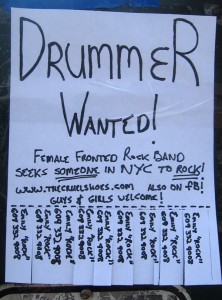 DRUMMER
WANTED!
FEMALE FRONTED ROCK BAND
SEEKS SOMEONE IN NYC TO ROCK!
WWW.THECRUELSHOES.COM ALSO ON FB!
GUYS & GIRLS WELCOME!
EMILY "ROCK"
609 332 9008
EMILY "ROCK"
609 332 9008
EMILY "ROCK"
609 332 9008
EMILY "ROCK"
609 332 9008
EMILY "ROCK"
609 332 9008
EMILY "ROCK"
609 332 9008
EMILY "ROCK"
609 332 9008
EMILY "ROCK"
609 332 9008
EMILY "ROCK"
609 332 9008